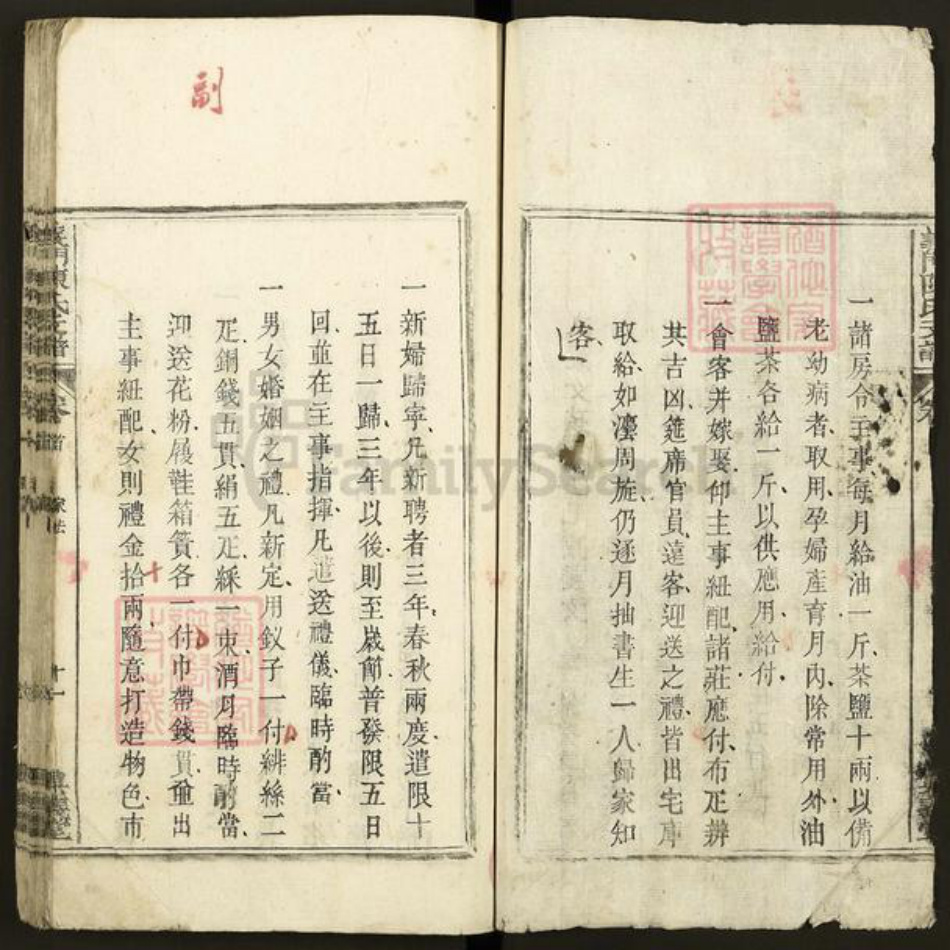 一諸房令主事每月給油一斤、茶鹽十兩以備
老幼病者、取用、孕婦產育月內、除常用外油
鹽茶各給一斤、以供應用給付、
一會客并嫁娶、仰主事紐配、諸莊應付、布疋辨
其吉凶、筵席官員、遠客、迎送之禮、皆出宅庫
取給、如濅周旋仍逐月抽書生一人歸家知
客、
副
一新婦歸寧、凡新聘者三年、春秋兩度、遣限十
五日一歸、三年以後、則至歲節、普發限五日
回、並在主事指揮、凡遣送禮儀、臨時酌當、
一男女婚姻之禮、凡新定、用釵子一付緋絲二
疋銅錢五貫絹五疋綵一束酒肉臨時酌當、
迎送花粉、履鞋箱篢各一付巾帶錢貫並出
主事紐配、女則禮金拾兩、隨意打造物色、市
義門陳氏支譜
卷首
家法
十一
FamilySearch